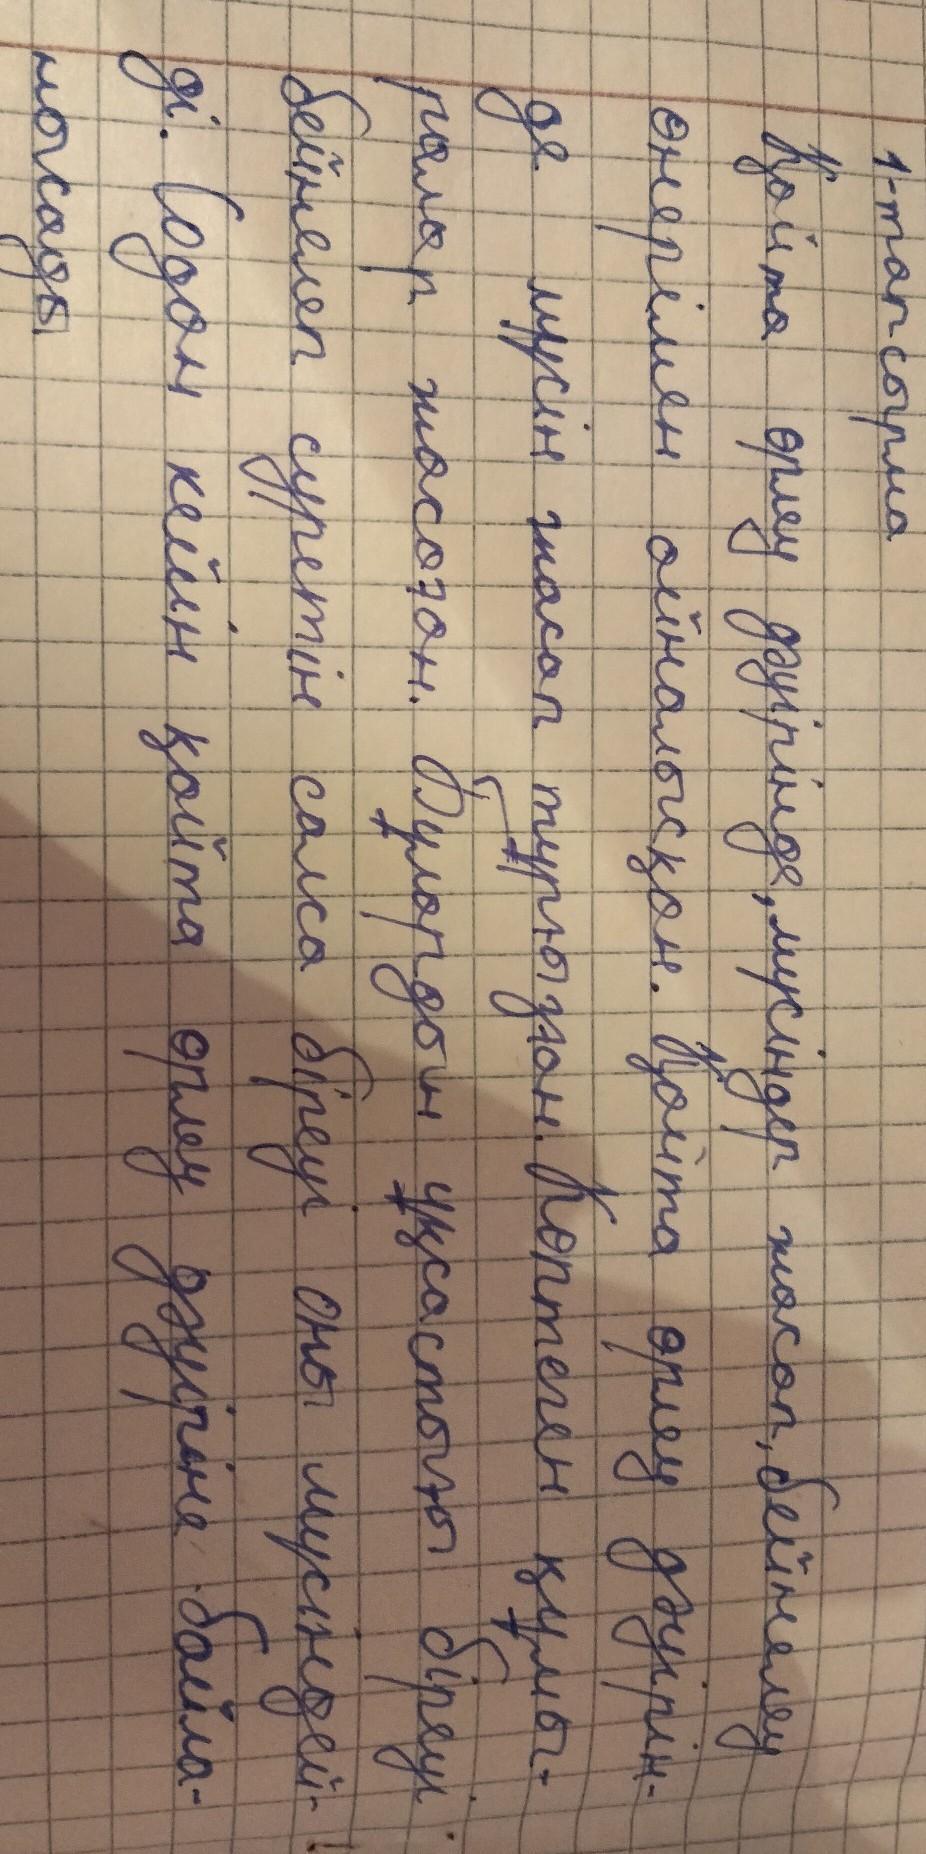 1-тапсырма
Қайта өрлеу дәуірінде, мүсіндер жасап, бейнелеу
өнерімен айналысқан. Қайта өрлеу дәуірін-
де мүсін жасап тұрғызған. Көптеген құмы-
ралар жасаған. Бұлардын ұқсастығы біреуі
бейнелеп суретін салса біреуі оны мүсіндей-
ді. Содан кейін қайта өрлеу дәуіріне байла-